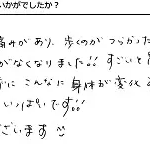 いかがでしたか？
痛みがあり、歩くのがつらかった
がなくなりました!! すごいと
にこんなに身体が変化
いっぱいです!!
ざいます